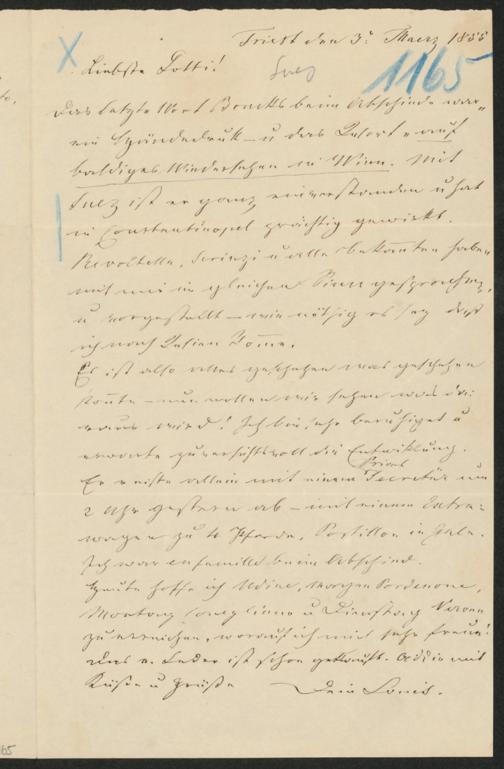 Triest den 3. Maerz 1855
X Liebste Lotti! Suez 1165
Das letzte Wort Brucks beim Abschiede war
ein Händedruk – u das Wort "auf
baldiges Wiedersehen in Wien. Mit
Suez ist er ganz einverstanden u hat
in Constantinopel prächtig gewirkt.
Revoltella, u alle Bekannten haben
mit mir im gleichen Sinne gesprochen,
u vorgestellt – wie nöthig es sey daß
ich nach Italien komme.
Es ist also alles geschehen was geschehen
konte – nun wollen wir sehen was da-
raus wird! Ich bin sehr beruhiget u
erwarte zuversichtsvoll die Entwiklung.
Er reiste allein mit einem Secretär um
2 Uhr gestern ab – mit einem Extra-
wagen zu 4 Pferde, Postillon in Gala.
Ich war en famille beim Abschied.
Heute hoffe ich Udine, morgen Pordenone,
Montag Conegliano u Dienstag Verona
zu erreichen, worauf ich mich sehr freue!
Das v. Leder ist schon gekauft. Addio mit
Küße u Grüße Dein Louis.
65